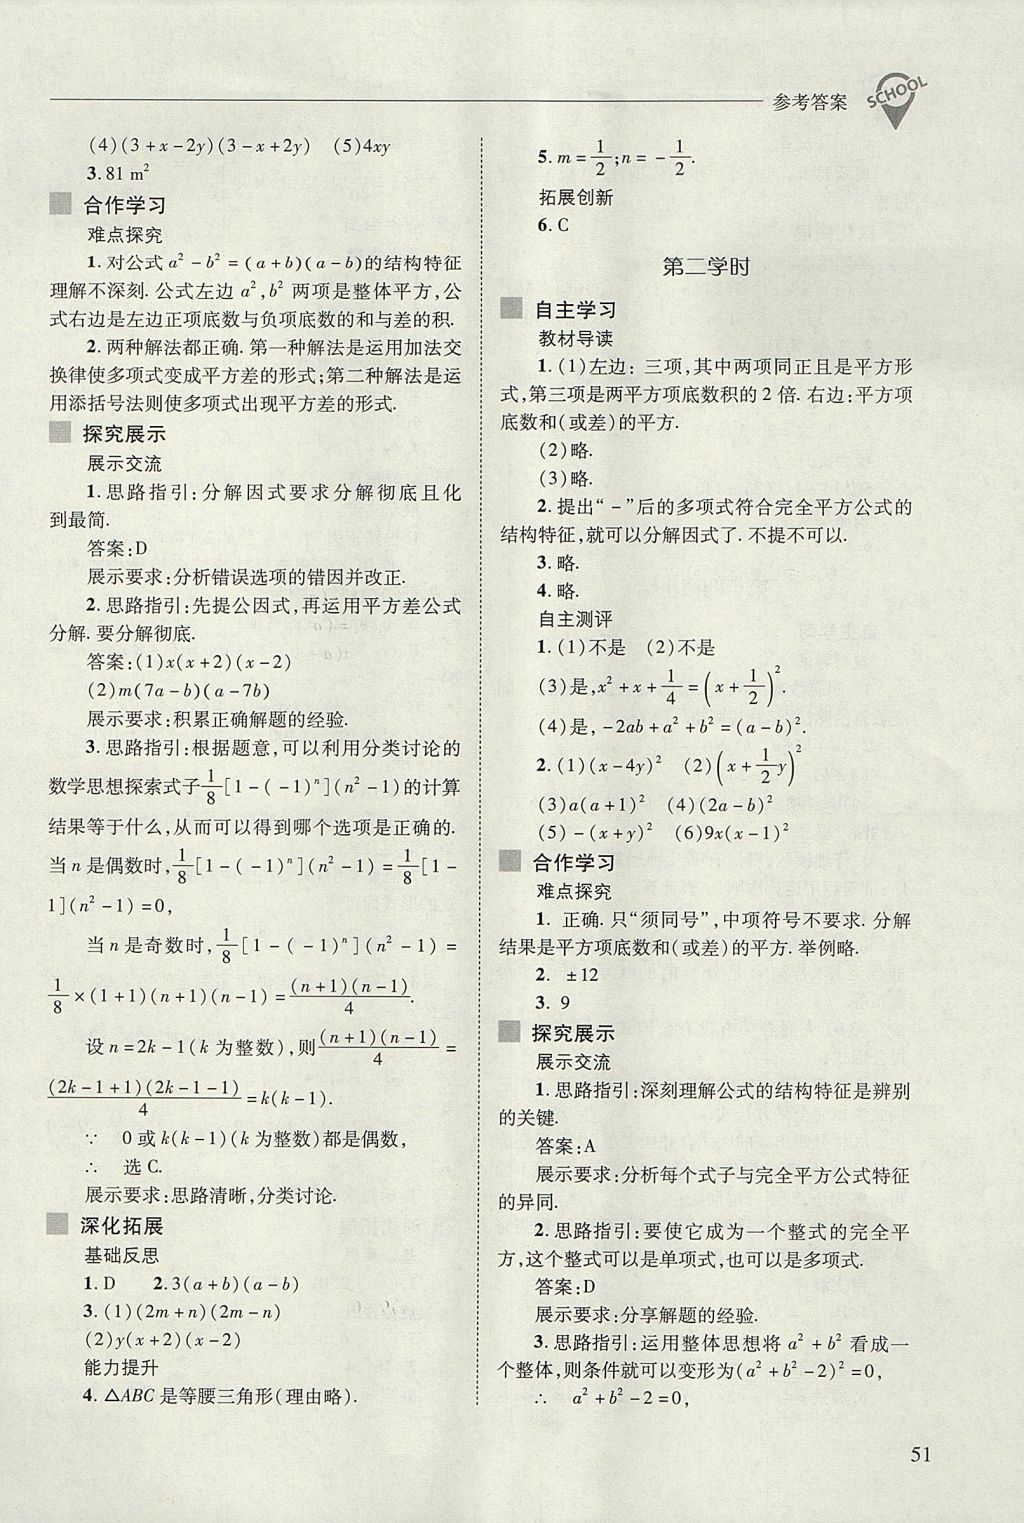 参考答案
SCHOOL
(4)(3+x-2y)(3-x+2y) (5)4xy
3.81 m²
合作学习
难点探究
1.对公式a²-b²=(a+b)(a-b)的结构特征
理解不深刻.公式左边a²,b²两项是整体平方,公
式右边是左边正项底数与负项底数的和与差的积.
2.两种解法都正确.第一种解法是运用加法交
换律使多项式变成平方差的形式;第二种解法是运
用添括号法则使多项式出现平方差的形式.
探究展示
展示交流
1.思路指引:分解因式要求分解彻底且化
到最简.
答案:D
展示要求:分析错误选项的错因并改正.
2.思路指引:先提公因式,再运用平方差公式
分解.要分解彻底.
答案:(1)x(x+2)(x-2)
(2)m(7a-b)(a-7b)
展示要求:积累正确解题的经验.
3.思路指引:根据题意,可以利用分类讨论的
数学思想探索式子1/8[1-(-1)ⁿ](n²-1)的计算
结果等于什么,从而可以得到哪个选项是正确的.
当n是偶数时,1/8[1-(-1)ⁿ](n²-1)=1/8[1-
1](n²-1)=0,
当n是奇数时,1/8[1-(-1)ⁿ](n²-1)=
1/8×(1+1)(n+1)(n-1)=(n+1)(n-1)/4.
设n=2k-1(k为整数),则(n+1)(n-1)/4=
(2k-1+1)(2k-1-1)/4=k(k-1).
∵ 0或k(k-1)(k为整数)都是偶数,
∴ 选C.
展示要求:思路清晰,分类讨论.
深化拓展
基础反思
1.D 2.3(a+b)(a-b)
3.(1)(2m+n)(2m-n)
(2)y(x+2)(x-2)
能力提升
4.△ABC是等腰三角形(理由略).
5.m=1/2;n=-1/2.
拓展创新
6.C
第二学时
自主学习
教材导读
1.(1)左边:三项,其中两项同正且是平方形
式,第三项是两平方项底数积的2倍.右边:平方项
底数和(或差)的平方.
(2)略.
(3)略.
2.提出“-”后的多项式符合完全平方公式的
结构特征,就可以分解因式了.不提不可以.
3.略.
4.略.
自主测评
1.(1)不是 (2)不是
(3)是,x²+x+1/4=(x+1/2)².
(4)是,-2ab+a²+b²=(a-b)².
2.(1)(x-4y)² (2)(x+1/2y)²
(3)a(a+1)² (4)(2a-b)²
(5)-(x+y)² (6)9x(x-1)²
合作学习
难点探究
1. 正确.只“须同号”,中项符号不要求.分解
结果是平方项底数和(或差)的平方.举例略.
2. ±12
3. 9
探究展示
展示交流
1.思路指引:深刻理解公式的结构特征是辨别
的关键.
答案:A
展示要求:分析每个式子与完全平方公式特征
的异同.
2.思路指引:要使它成为一个整式的完全平
方,这个整式可以是单项式,也可以是多项式.
答案:D
展示要求:分享解题的经验.
3.思路指引:运用整体思想将a²+b²看成一
个整体,则条件就可以变形为(a²+b²-2)²=0,
∴ a²+b²-2=0,
51